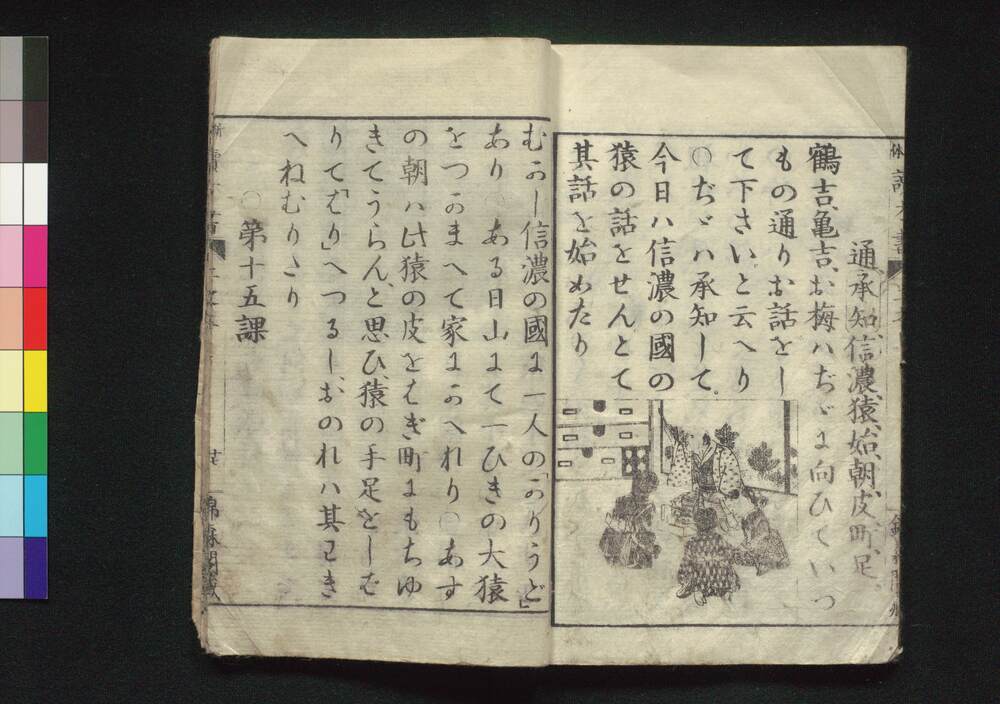 通、承知、信濃、猿、始、朝、皮、町、足、
鶴吉、亀吉、お梅ハぢゞに向ひて、いつ
もの通りお話をし
て下さいと云へり
〇ぢゞハ承知して
今日ハ信濃の國の
猿の話をせんとて
其話を始めたり
むかし信濃の國に一人の「かりうど」
あり〇ある日山にて一ひきの大猿
をつかまへて家にかへれり〇あす
の朝ハ此猿の皮をはぎ町にもちゆ
きてうらん、と思ひ、猿の手足をしば
りて「はり」へつるし、おのれハ其わき
へねむりたり
〇第十五課